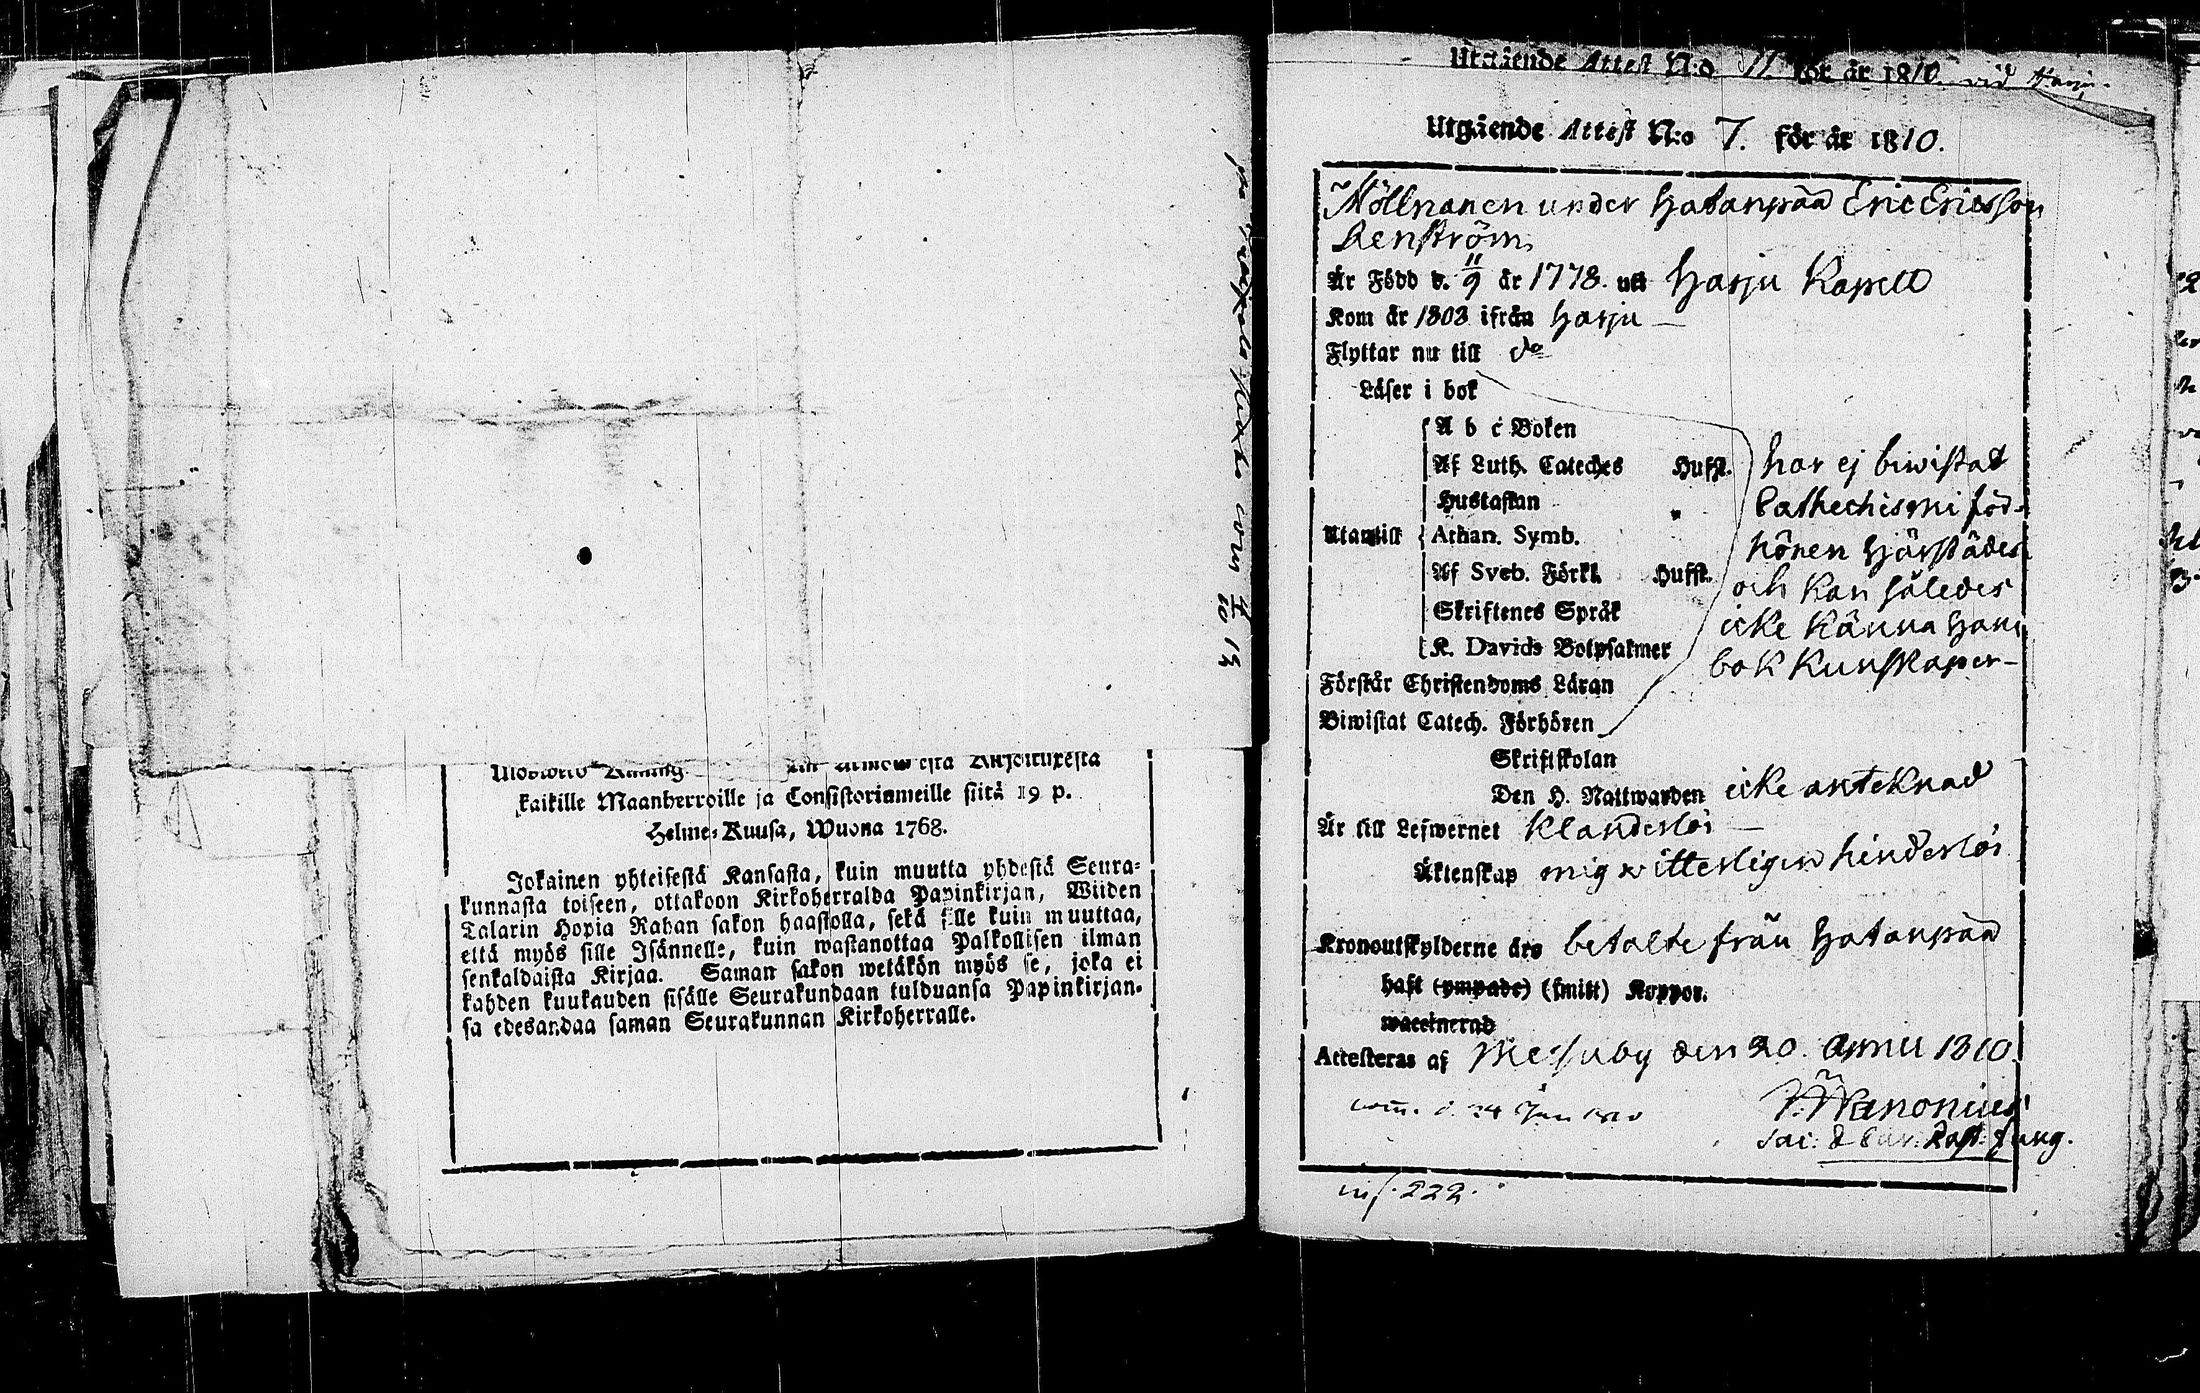 kaikille Maanherroille ja Consistoriumeille siitä 19 p.
Helme-Kuusa, Wuona 1768.
Jokainen yhteisestä Kansasta, kuin muutta yhdestä Seura-
kunnasta toiseen, ottakoon Kirkoherralda Papinkirjan, Wiiden
Talarin Hopia Rahan sakon haastolla, sekä sille kuin muuttaa,
että myös sille Isännelle, kuin wastanottaa Palkollisen ilman
senkaldaista Kirjaa. Saman sakon wetäkön myös se, joka ei
kahden kuukauden sisälle Seurakundaan tulduansa Papinkirjan-
sa edesandaa saman Seurakunnan Kirkoherralle.
Utgående Attest N:o 11. för år 1810 vid Harju
Utgående Attest N:o 7. för år 1810.
Möllnaren under Hatanpää Eric Ericsson
Lenström
Är Född d. 11/9 år 1778. uti Harju Kapell
Kom år 1808 ifrån Harju
Flyttar nu till do
Läser i bok
A b c Boken
Af Luth. Cateches Hufft. har ej biwistat
Hustaflan Cathechismi för-
Utantill Athan. Symb. hören härstädes
Af Sveb. Förkl. Hufft. och kan således
Skriftenes Språk icke känna hans
K. Davids Botpsalmer bok kunskaper
Förstår Christendoms Läran
Biwistat Catech. Förhören
Skriftskolan
Den H. Nattwarden icke anteknad
Är till Lefwernet Klanderlös
Äktenskap mig witterligen hinderlös
Kronoutskylderne äro betalte från Hatanpää
haft (ympade) (smitt) Koppor.
waccinerad
Attesteras af Messuby den 20. April 1810.
sac. & Cur. Past. fung.
inf. 222.